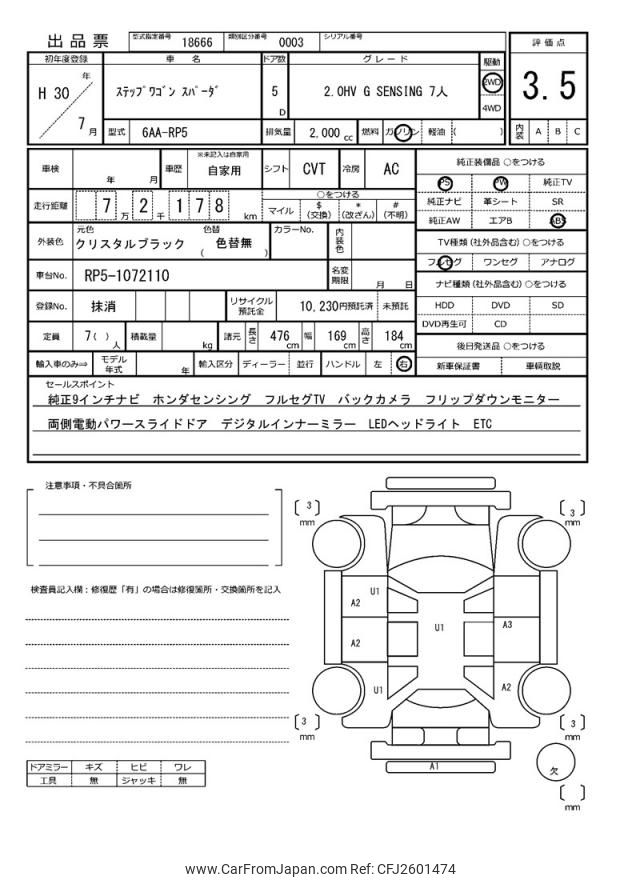 出品票 型式指定番号 18666 類別区分番号 0003 シリアル番号
評価点
3.5
内装 A B C
初年度登録 車名 ドア数 グレード 駆動
H 30 年 7 月
ステップワゴン スパーダ 5 D 2.0HV G SENSING 7人 2WD
4WD
型式 6AA-RP5 排気量 2,000 cc 燃料 ガソリン 軽油 ( )
車検 年 月 車歴 ※未記入は自家用 自家用 シフト CVT 冷房 AC
走行距離 7 万 2 千 1 7 8 km
○をつける
マイル $ (交換) * (改ざん) # (不明)
外装色 元色 クリスタルブラック 色替 ( 色替無 ) カラーNo. 内装色
車台No. RP5-1072110 名変期限 月 日
登録No. 抹消 リサイクル預託金 10,230円預託済 未預託
定員 7( ) 人 積載量 kg 諸元 長さ 476 cm 幅 169 cm 高さ 184 cm
輸入車のみ⇒ モデル年式 年 輸入区分 ディーラー 並行 ハンドル 左 右
純正装備品 ○をつける
PS PW 純正TV
純正ナビ 革シート SR
純正AW エアB ABS
TV種類 (社外品含む) ○をつける
フルセグ ワンセグ アナログ
ナビ種類 (社外品含む) ○をつける
HDD DVD SD
DVD再生可 CD
後日発送品 ○をつける
新車保証書 車輌取説
セールスポイント
純正9インチナビ ホンダセンシング フルセグTV バックカメラ フリップダウンモニター
両側電動パワースライドドア デジタルインナーミラー LEDヘッドライト ETC
注意事項・不具合箇所
検査員記入欄:修復歴「有」の場合は修復箇所・交換箇所を記入
ドアミラー キズ ヒビ ワレ
工具 無 ジャッキ 無
[ 3 ] mm
[ 3 ] mm
U1
A2
U1
A3
A2
U1
A2
[ 3 ] mm
[ 3 ] mm
A1
欠
[ ] mm
www.CarFromJapan.com Ref: CFJ2601474